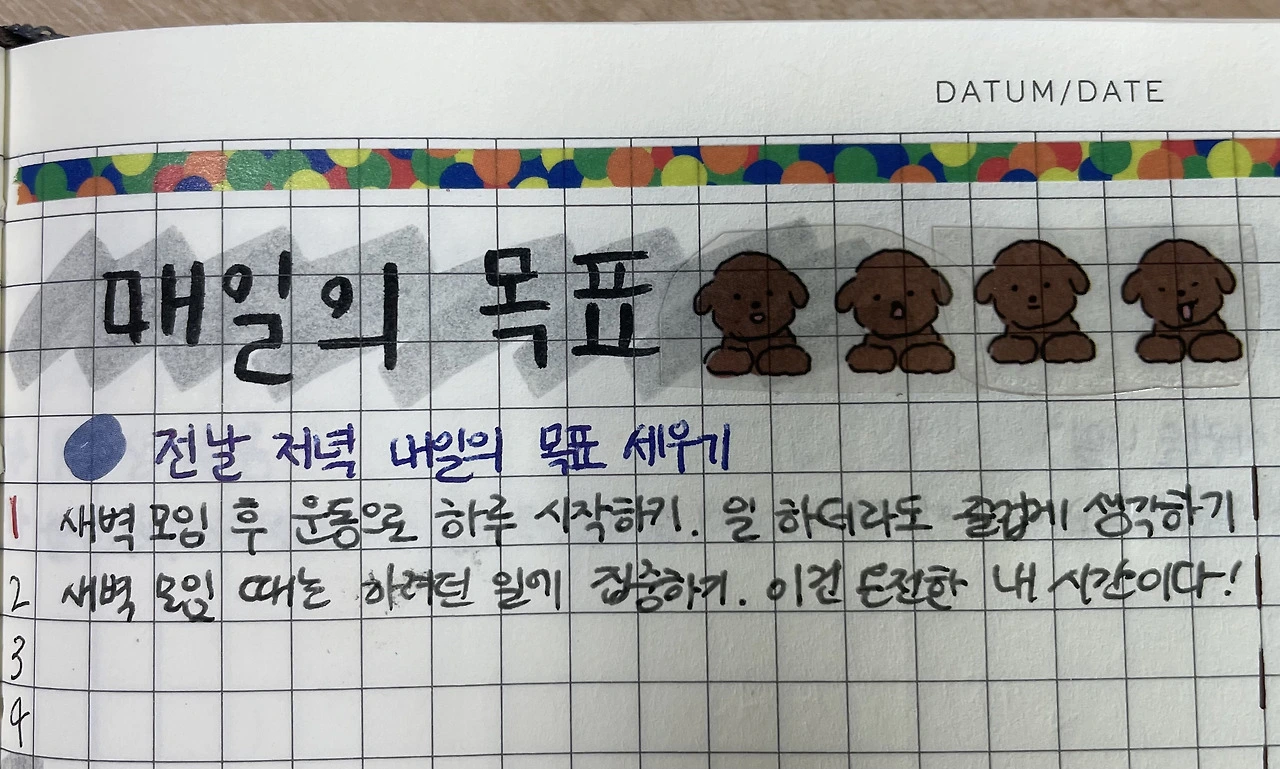 DATUM/DATE
매일의 목표
전날 저녁 내일의 목표 세우기
1 새벽 모임 후 운동으로 하루 시작하기. 일 하더라도 즐겁게 생각하기
2 새벽 모임 때는 하려던 일에 집중하기. 이건 온전한 내 시간이다!
3
4